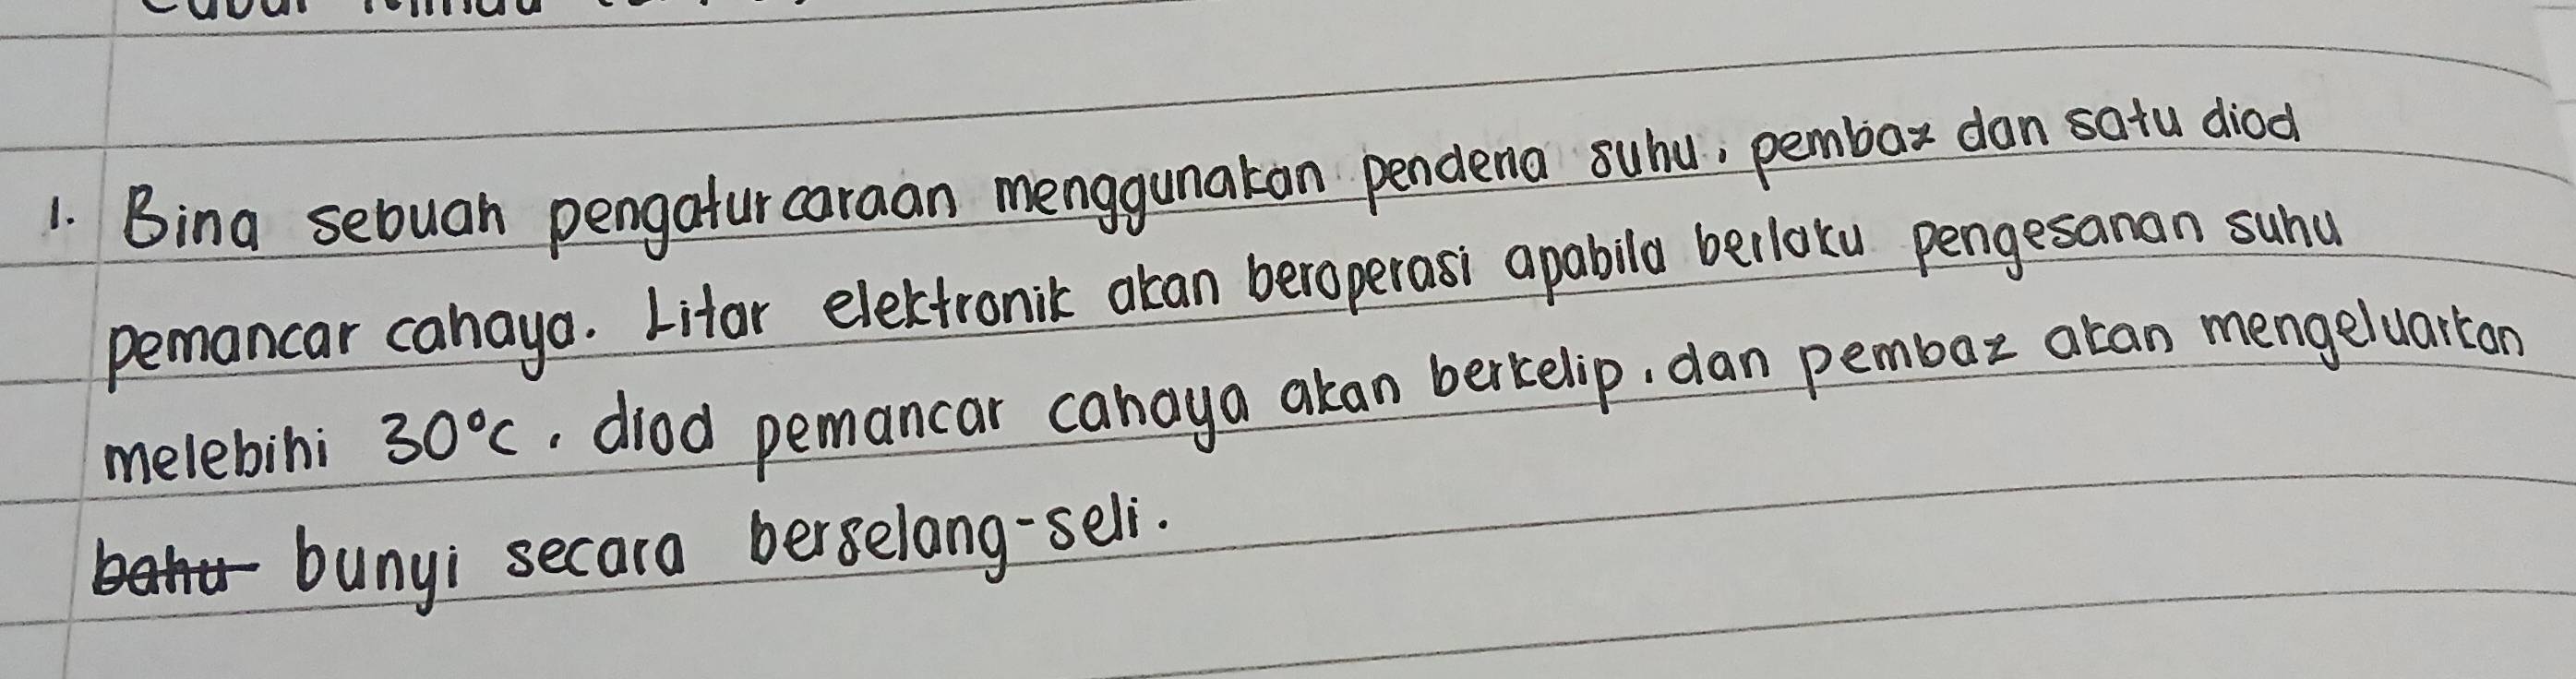 1. Bina sebuah pengaturcaraan menggunakan penderia suhu, pembaz dan satu diod
pemancar cahaya. Litar elektronik akan beroperasi apabila berlaku pengesanan suhu
melebihi 30°C, diod pemancar cahaya akan berkelip, dan pembaz akan mengeluarkan
bunyi secara berselang-seli.